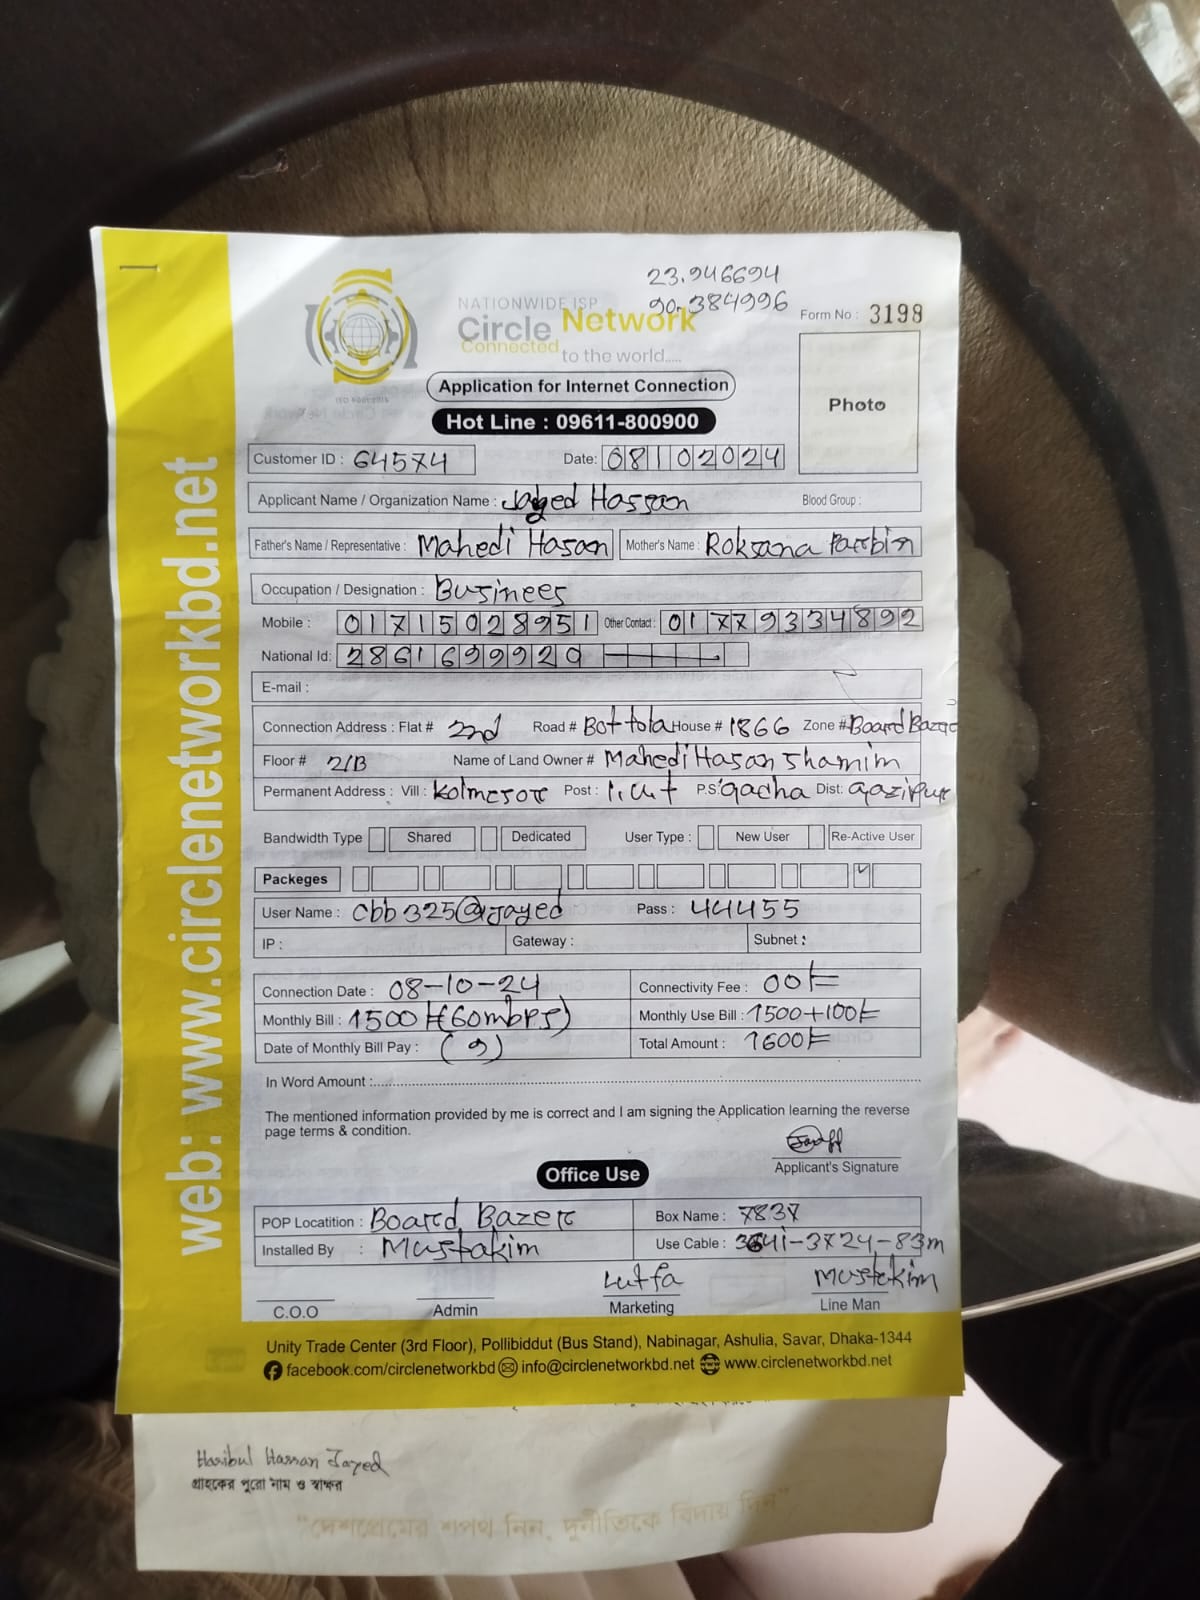 23.946694
90.384996
NATIONWIDE ISP
Circle Network
Connected to the world.....
Form No : 3198
Application for Internet Connection
Photo
Hot Line : 09611-800900
Customer ID : 64574 Date: 08102024
Applicant Name / Organization Name : Jayed Hassan Blood Group :
Father's Name / Representative : Mahedi Hasan Mother's Name : Roksana Parbin
Occupation / Designation : Businees
Mobile : 01715028951 Other Contact : 01779334892
National Id: 2861699920
E-mail :
Connection Address : Flat # 2nd Road # Bottola House # 1866 Zone # Board Bazar
Floor # 2/B Name of Land Owner # Mahedi Hasan Shamim
Permanent Address : Vill : Kolmesor Post : P.S: gacha Dist: gazipur
Bandwidth Type Shared Dedicated User Type : New User Re-Active User
Packeges
User Name : Cbb325@jayed Pass : 44455
IP : Gateway : Subnet :
Connection Date : 08-10-24 Connectivity Fee : 00/=
Monthly Bill : 1500/=(60mbps) Monthly Use Bill : 1500+100/=
Date of Monthly Bill Pay : (9) Total Amount : 1600/=
In Word Amount :
The mentioned information provided by me is correct and I am signing the Application learning the reverse
page terms & condition.
Applicant's Signature
Office Use
POP Locatition : Board Bazer Box Name : 7837
Installed By : Mustakim Use Cable : 3641-3724-83m
Lutfa Mustekim
C.O.O Admin Marketing Line Man
Unity Trade Center (3rd Floor), Pollibiddut (Bus Stand), Nabinagar, Ashulia, Savar, Dhaka-1344
facebook.com/circlenetworkbd info@circlenetworkbd.net www.circlenetworkbd.net
web: www.circlenetworkbd.net
Hasibul Hassan Jayed
গ্রাহকের পুরো নাম ও স্বাক্ষর
"দেশপ্রেমের শপথ নিন, দুর্নীতিকে বিদায় দিন"